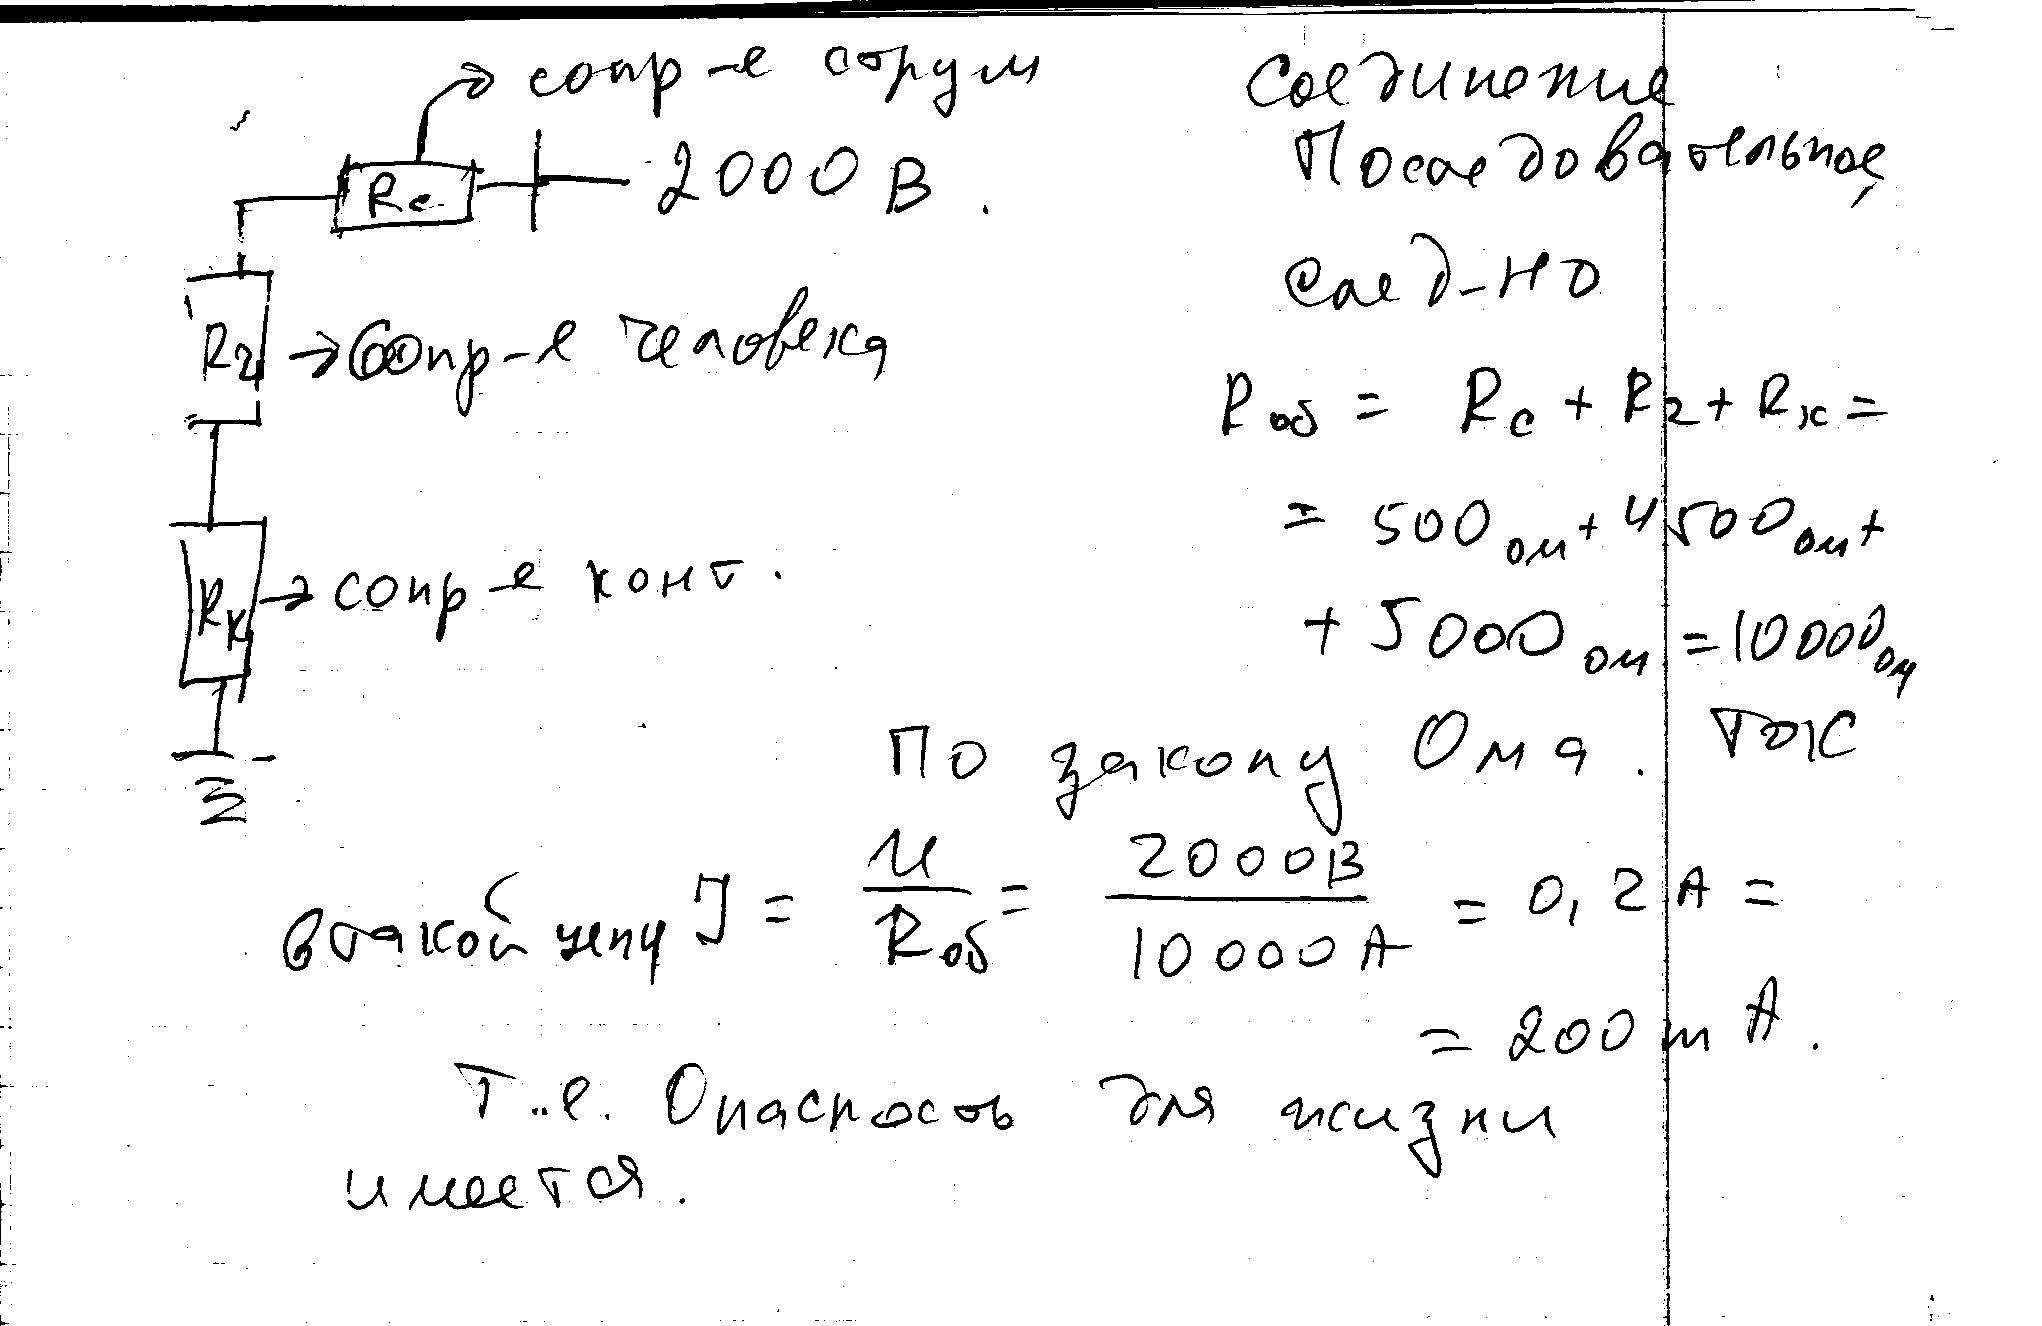 сопр-е струи
Rc
2000 В.
R2
Сопр-е человека
Rк
сопр-е конт.
Соединение
Последовательное,
след-но
Rоб = Rc + R2 + Rк =
= 500 ом + 4500 ом +
+ 5000 ом = 10000 ом
По закону Ома. Ток
в такой цепи J = U/Rоб = 2000В/10000А = 0,2 А =
= 200 mA.
Т.е. Опасность для жизни
имеется.